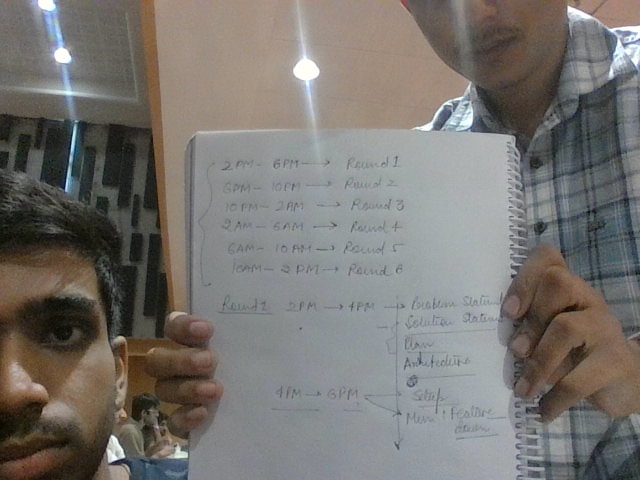 2 PM - 6 PM → Round 1
6 PM - 10 PM → Round 2
10 PM - 2 AM → Round 3
2 AM - 6 AM → Round 4
6 AM - 10 AM → Round 5
10 AM - 2 PM → Round 6
Round 1 2 PM → 4 PM → Problem Statem
Solution Statem
Plan
Architecture
4 PM → 6 PM → Setup
Main Feature
down